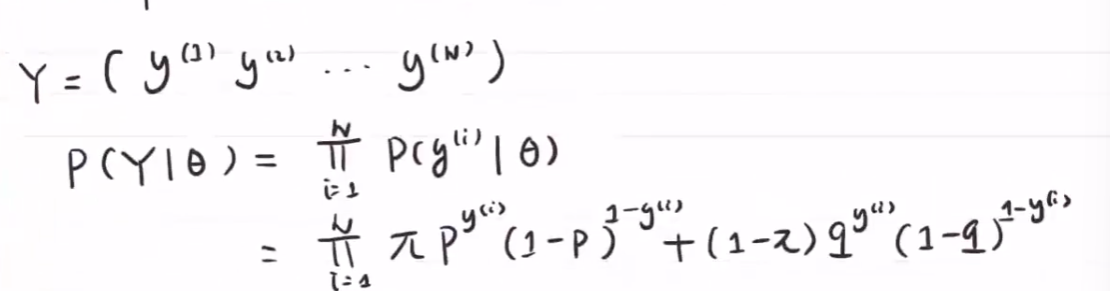 Y = ( y^{(1)} y^{(2)} ... y^{(N)} )
P(Y|θ) = ∏_{i=1}^{N} P(y^{(i)} | θ)
= ∏_{i=1}^{N} π p^{y^{(i)}} (1-p)^{1-y^{(i)}} + (1-π) q^{y^{(i)}} (1-q)^{1-y^{(i)}}